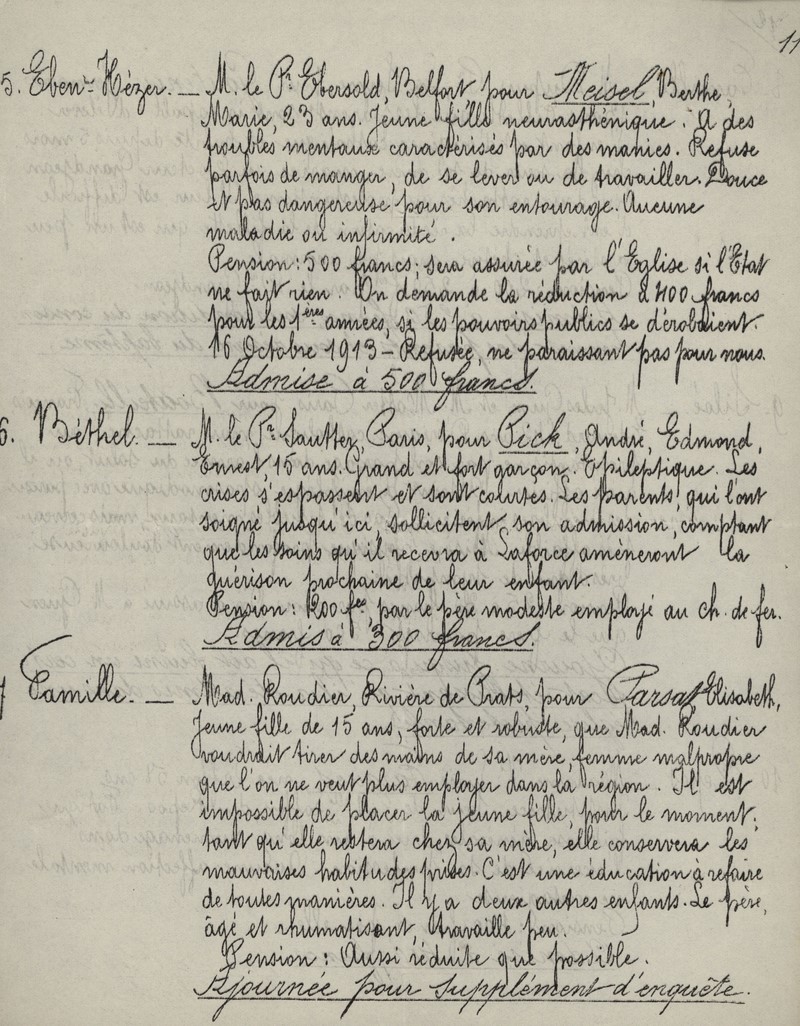 11
5. Eben-Hézer. — M. le Pr Ebersold, Belfort pour Meisel, Berthe,
Marie, 23 ans. Jeune fille neurasthénique. A des
troubles mentaux caractérisés par des manies. Refuse
parfois de manger, de se lever ou de travailler. Douce
et pas dangereuse pour son entourage. Aucune
maladie ou infirmité.
Pension: 500 francs; sera assurée par l'Eglise si l'Etat
ne fait rien. On demande la réduction à 400 francs
pour les 1ères années, si les pouvoirs publics se dérobaient.
16 Octobre 1913 - Refusée, ne paraissant pas pour nous.
Admise à 500 francs.
6. Béthel. — M. le Pr Sautter, Paris, pour Pick, André, Edmond,
Ernest, 15 ans. Grand et fort garçon. Epileptique. Les
crises s'espassent et sont courtes. Les parents, qui l'ont
soigné jusqu'ici, sollicitent son admission, comptant
que les soins qu'il recevra à Laforce amèneront la
guérison prochaine de leur enfant.
Pension: 200 fcs, par le père modeste employé au ch. de fer.
Admis à 300 francs.
7 Famille. — Mad. Roudier, Rivière de Prats, pour Parsat, Elisabeth,
Jeune fille de 15 ans, forte et robuste, que Mad. Roudier
voudrait tirer des mains de sa mère, femme malpropre
que l'on ne veut plus employer dans la région. Il est
impossible de placer la jeune fille, pour le moment;
tant qu'elle restera chez sa mère, elle conservera les
mauvaises habitudes prises. C'est une éducation à refaire
de toutes manières. Il y a deux autres enfants. Le père,
âgé et rhumatisant, travaille peu.
Pension: Aussi réduite que possible.
Ajournée pour supplément d'enquête.